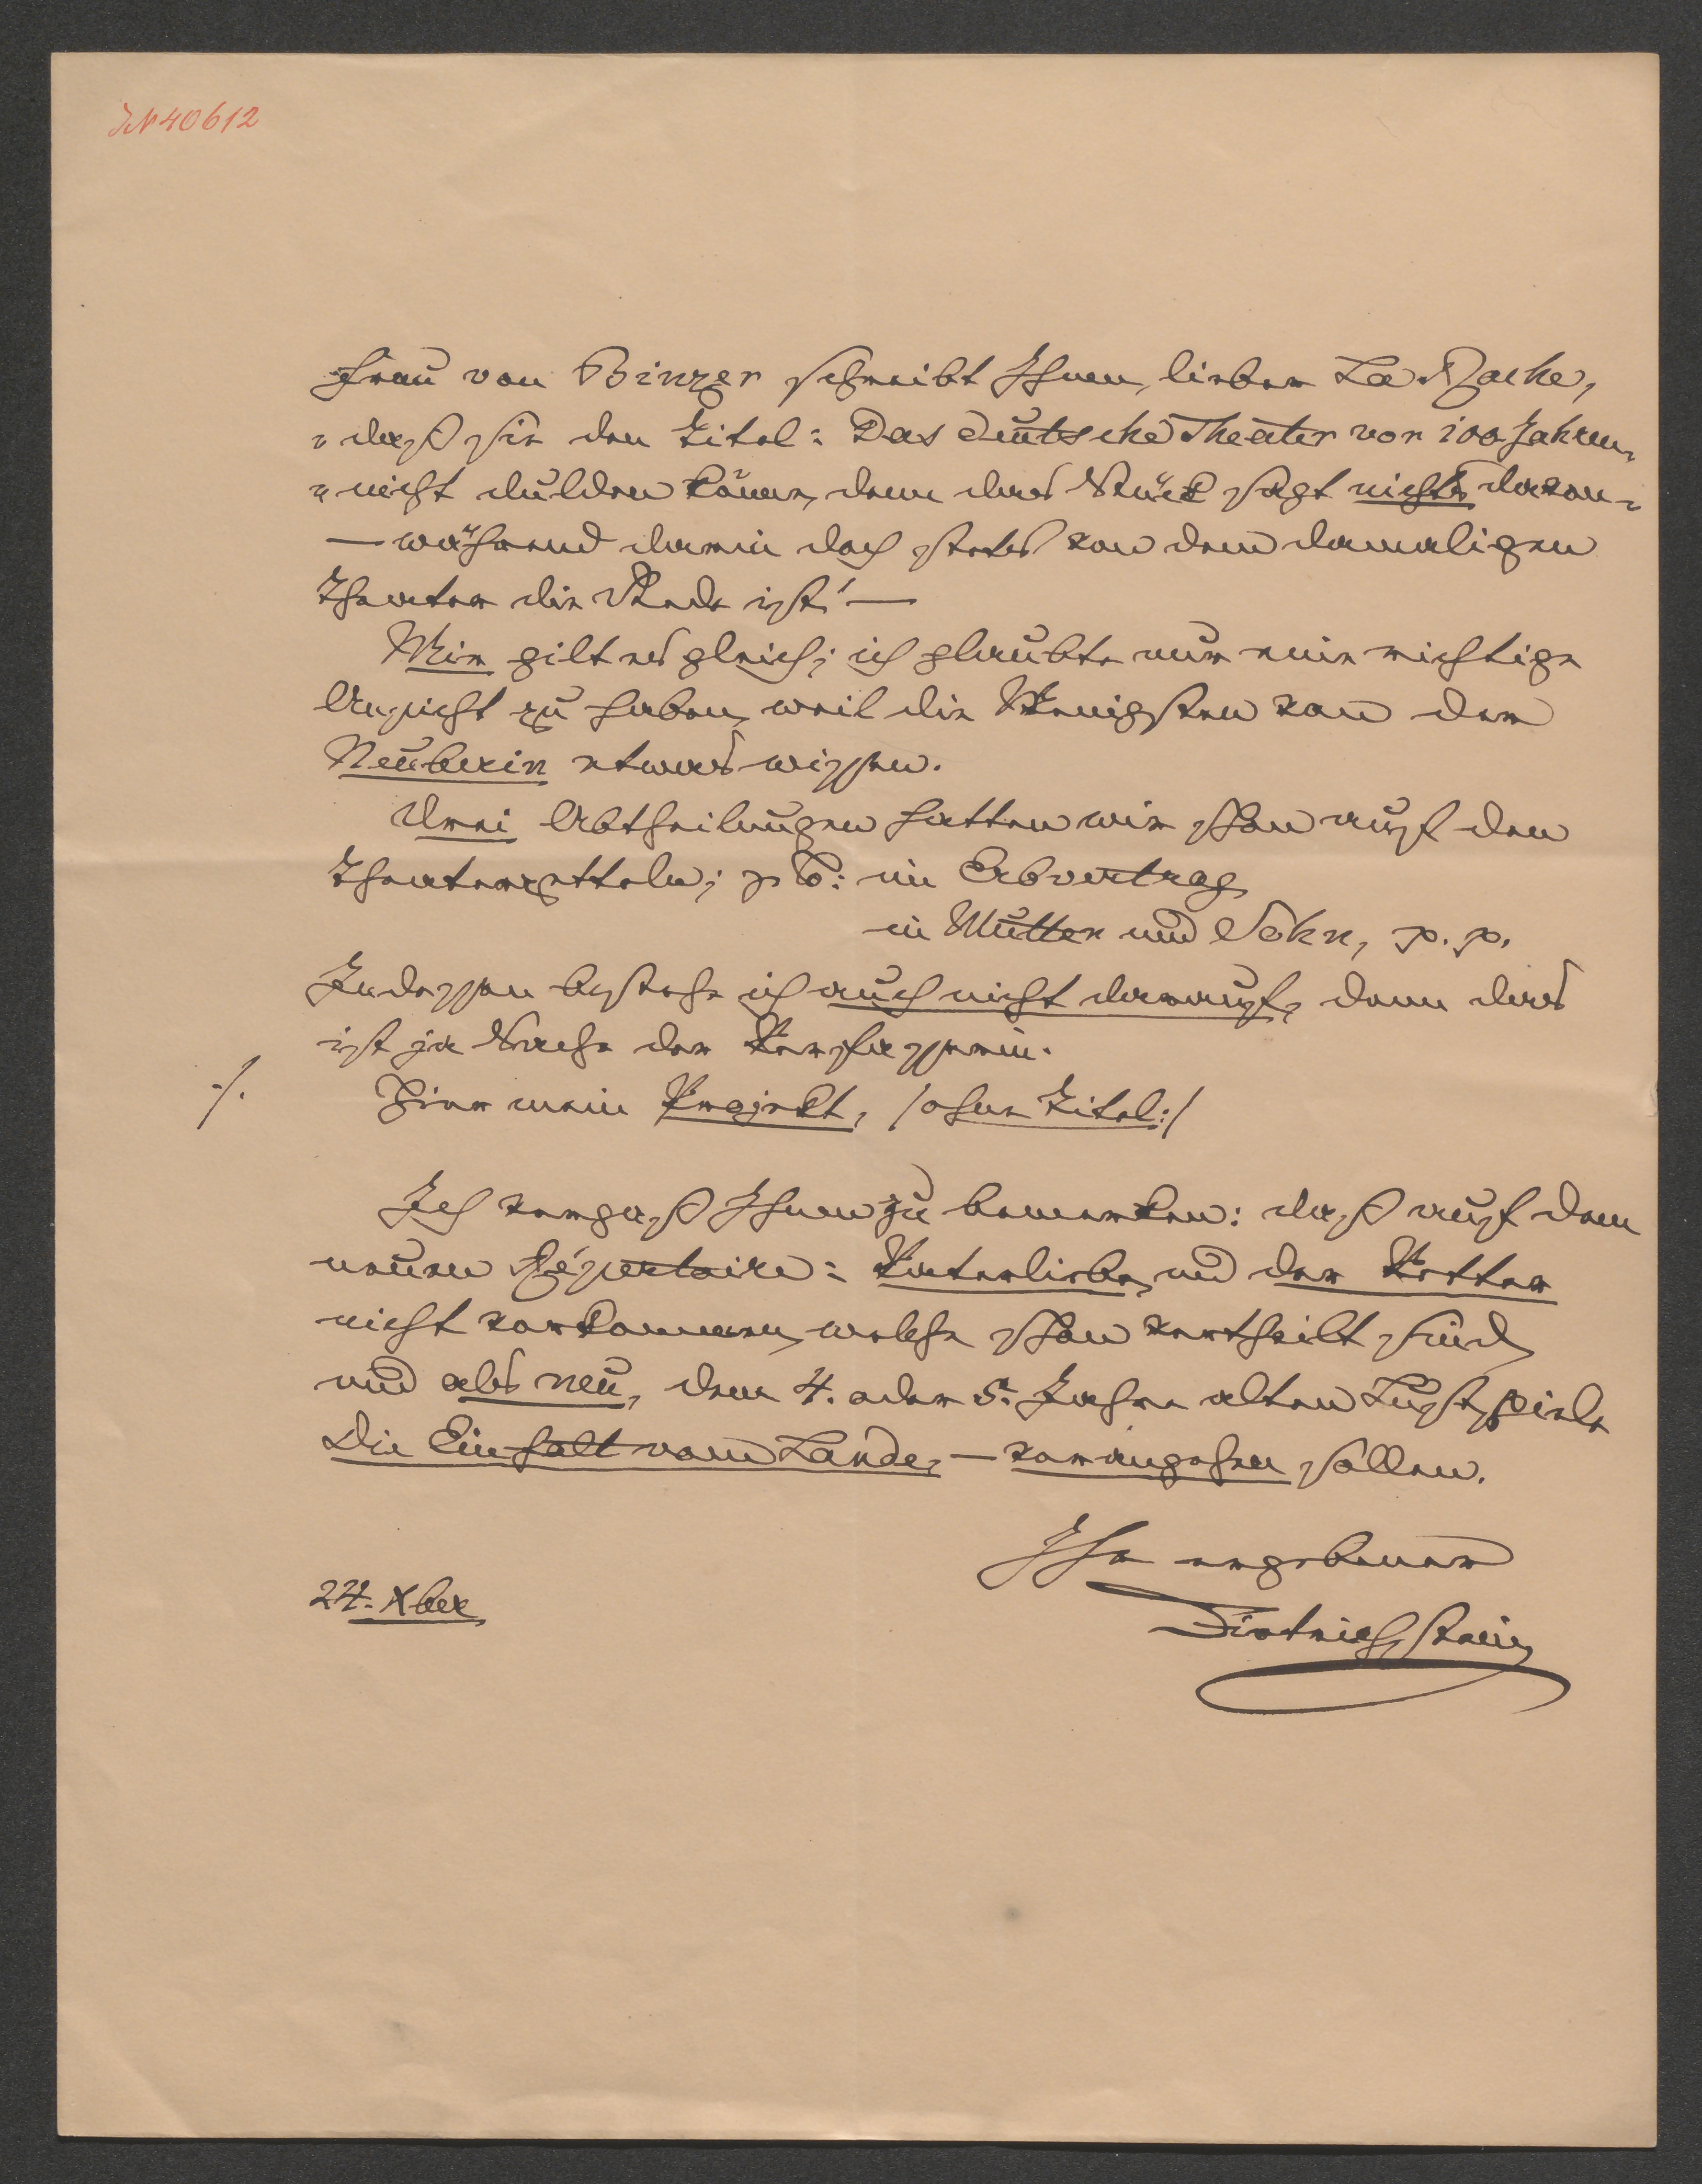 IN 40612
Frau von Binzer schreibt Ihnen, lieber La Roche,
„daß sie den Titel: Das deutsche Theater vor 100 Jahren„
„nicht dulden könne, denn das Stück sagt nichts davon„
— während darin doch stets von dem damaligen
Theater die Rede ist! —
Mir gilt es gleich; ich glaubte nur eine richtige
Ansicht zu haben, weil die Wenigsten von der
Neuberin etwas wissen.
Drei Abtheilungen hatten wir schon auf den
Theaterzetteln; z. B: im Erbvertrag,
in Mutter und Sohn, p. p.
Indessen bestehe ich auch nicht darauf, denn das
ist ja Sache der Verfasserin.
./. Hier mein Projekt, /ohne Titel:/
Ich vergaß Ihnen zu bemerken: daß auf dem
neuen Répertoire: Vaterliebe, und der Vetter
nicht vorkommen, welche schon vertheilt sind,
und als neu, dem 4. oder 5. Jahre alten Lustspiele
Die Einfalt vom Lande, — vorangehen sollen.
Ihr ergebener
24. Xber
Dietrichstein